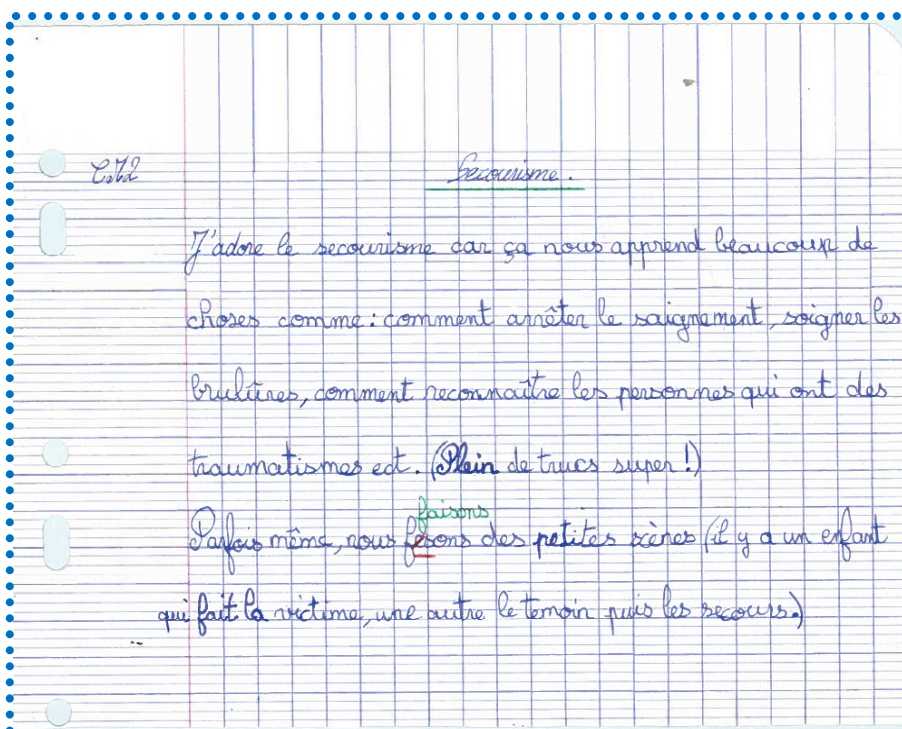 CM2
Secourisme.
J'adore le secourisme car ça nous apprend beaucoup de
choses comme : comment arrêter le saignement, soigner les
brulûres, comment reconnaître les personnes qui ont des
traumatismes ect. (Plein de trucs super !)
faisons
Parfois même, nous fesons des petites scènes (il y a un enfant
qui fait la victime, une autre le temoin puis les secours.)